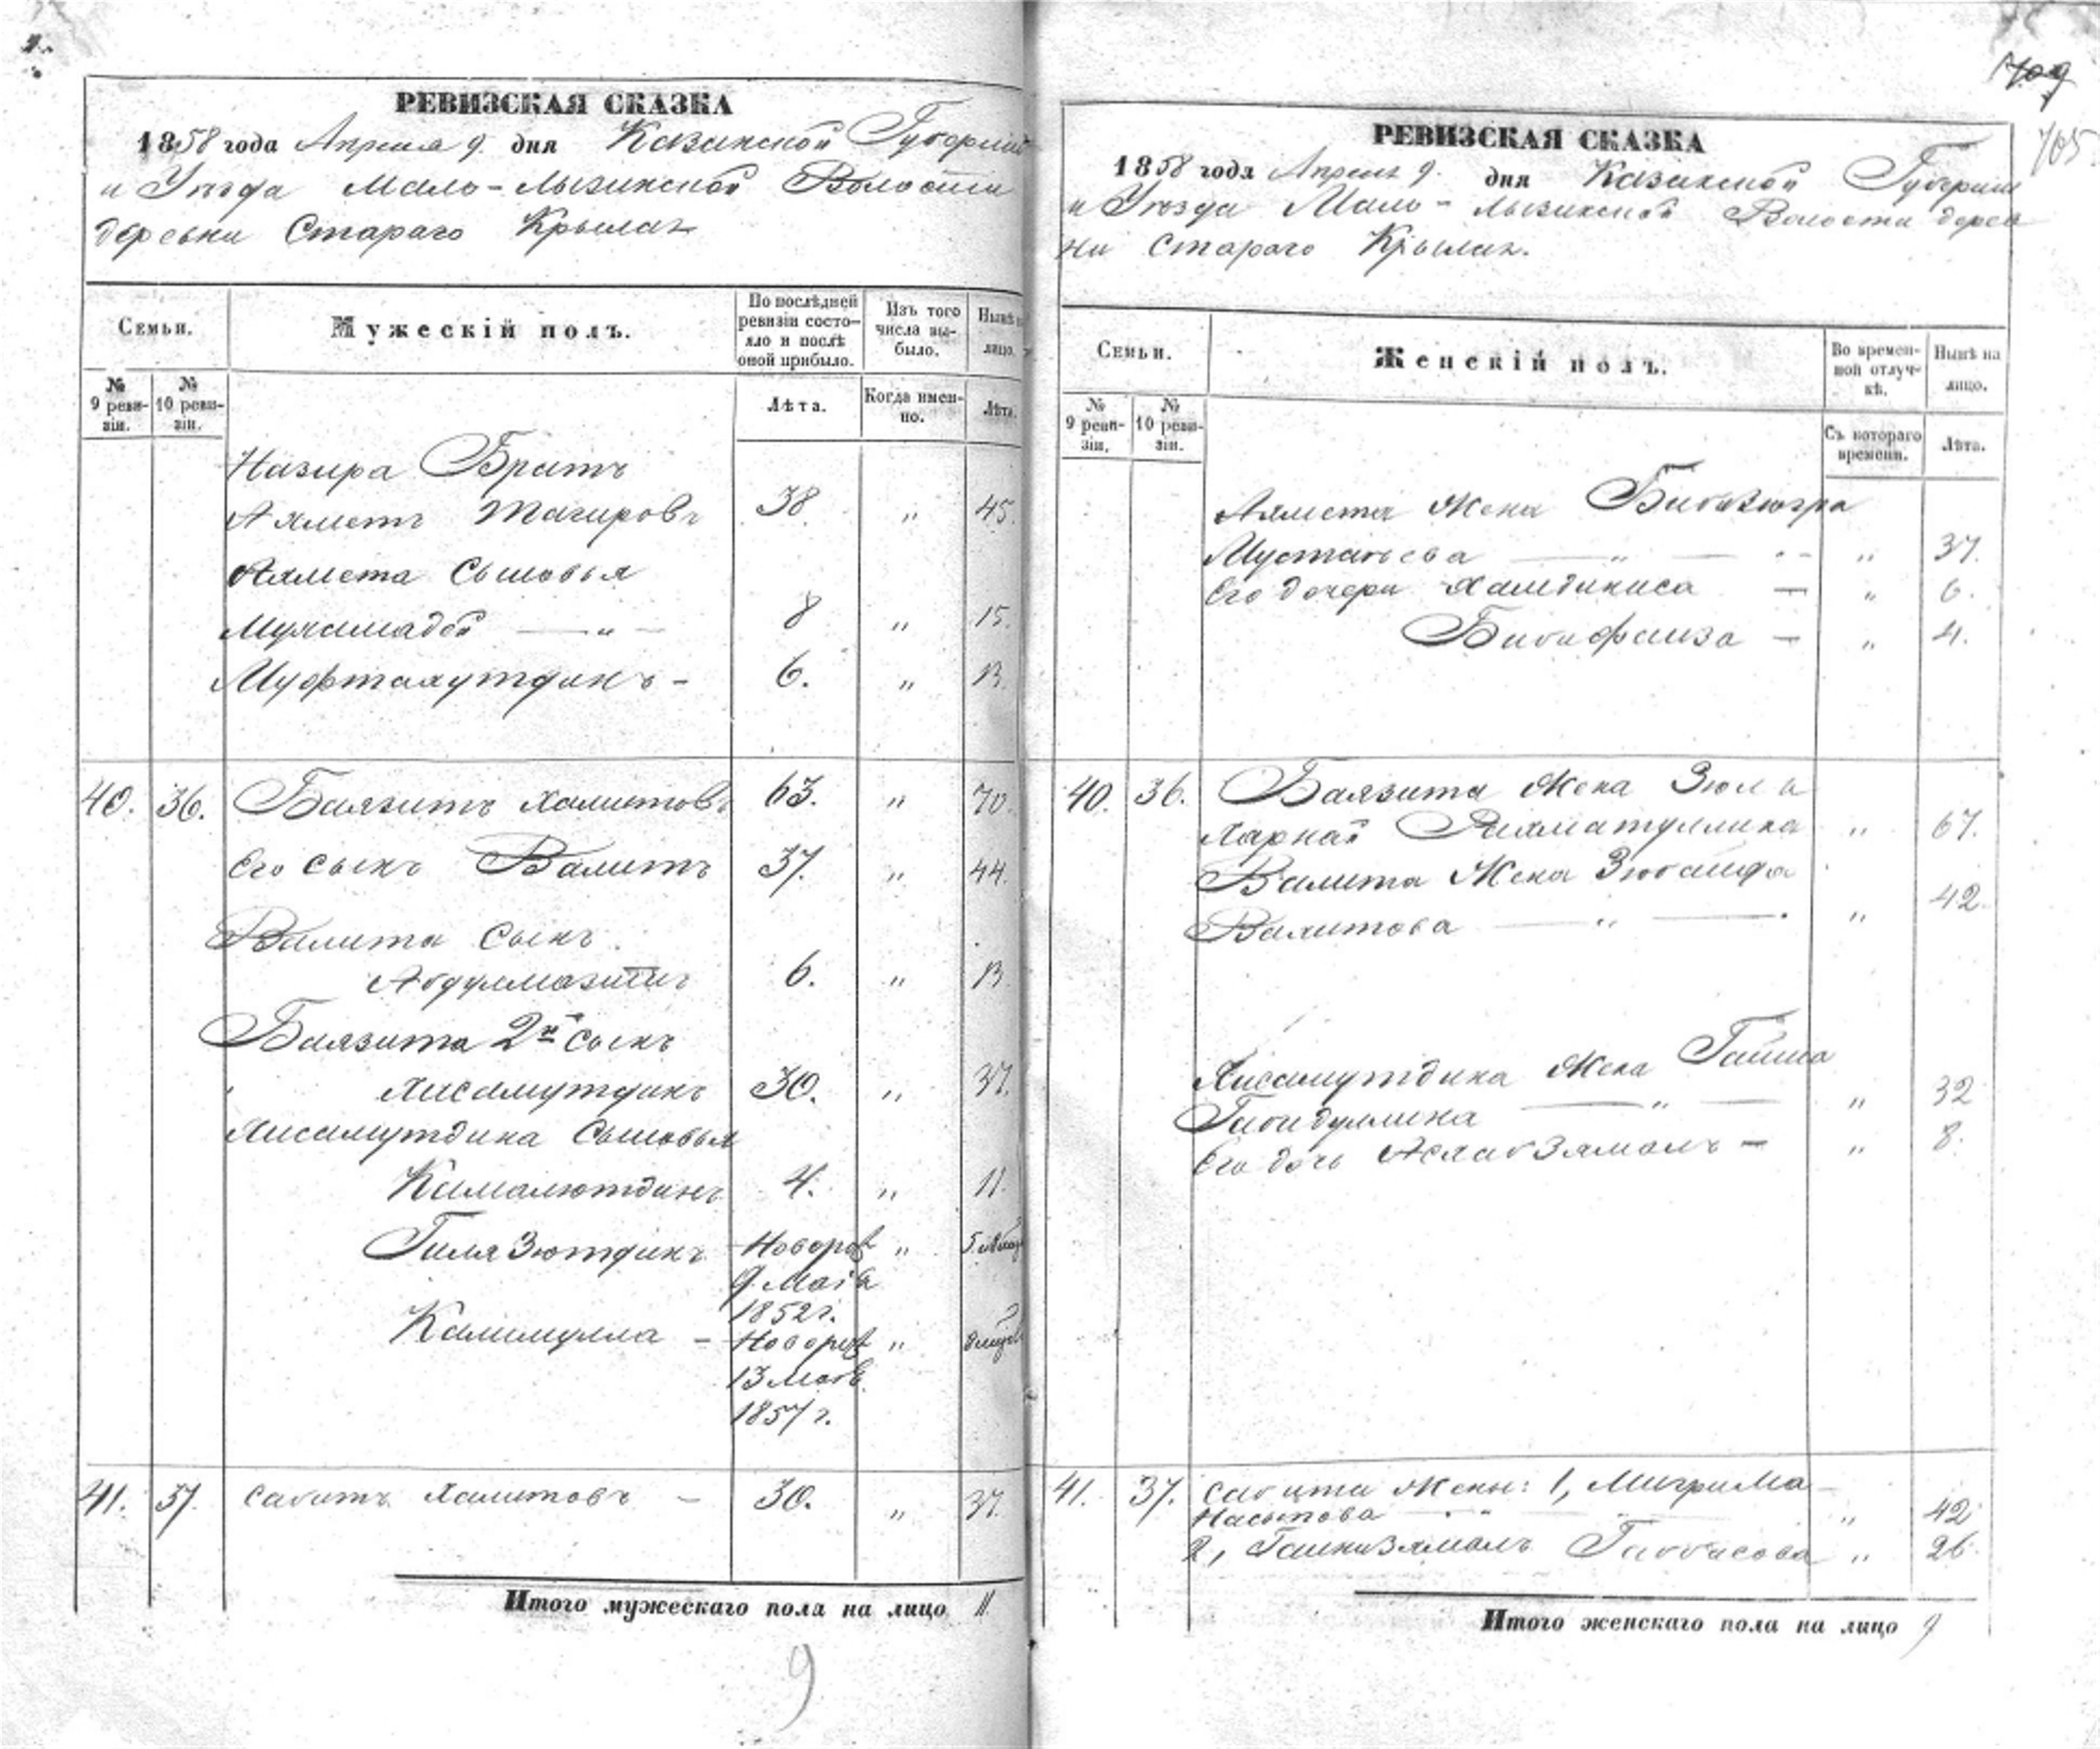 РЕВИЗСКАЯ СКАЗКА
1858 года Апреля 9. дня Казанской Губерніи
и Уѣзда Мало-Лызинской Волости
деревни Стараго Крылая
Семьи.
Мужескій полъ.
По послѣдней ревизіи состояло и послѣ оной прибыло.
Изъ того числа выбыло.
Нынѣ на лицо.
№ 9 ревизіи.
№ 10 ревизіи.
Лѣта.
Когда именно.
Лѣта.
Назира Братъ
Ахметъ Тагировъ 38 " 45.
Ахмета Сыновья
Мухамадей — " — 8 " 15.
Муфтахутдинъ - 6. " 13.
40. 36. Баязитъ Халитовъ 63. " 70.
Его сынъ Валитъ 37. " 44.
Валита сынъ.
6. " 13
Баязита 2й сынъ
Хисамутдинъ 30. " 37.
Хисамутдина Сыновья
Камалютдинъ 4. " 11.
Гилязютдинъ Новорож "
9 Маія
1852 г.
Калимулла - Новорож "
13
1857 г.
41. 37. Сабитъ Халитовъ - 30. " 37.
Итого мужескаго пола на лицо 11.
9
709
705
РЕВИЗСКАЯ СКАЗКА
1858 года Апреля 9. дня Казанской Губерніи
и Уѣзда Мало-Лызинской Волости дерев
ни Стараго Крылая.
Семьи.
Женскій полъ.
Во временной отлучкѣ.
Нынѣ на лицо.
№ 9 ревизіи.
№ 10 ревизіи.
Съ котораго времени.
Лѣта.
Ахмета Жена Бибизюгра
Мустаевa — " — " 37.
Его дочери Хамдиниса — " 6.
Бибифаиза — " 4.
40. 36. Баязита Жена Зюль
Рахматуллина " 67.
Валита Жена
Валитова — " — " 42.
Хисамутдина Жена Гайша
Габидуллина — " — " 32
Его дочь — " 8.
41. 37. Сабита Жены: 1,
Насыпова " 42
2, Гайнизямалъ Габбасова " 26.
Итого женскаго пола на лицо 9